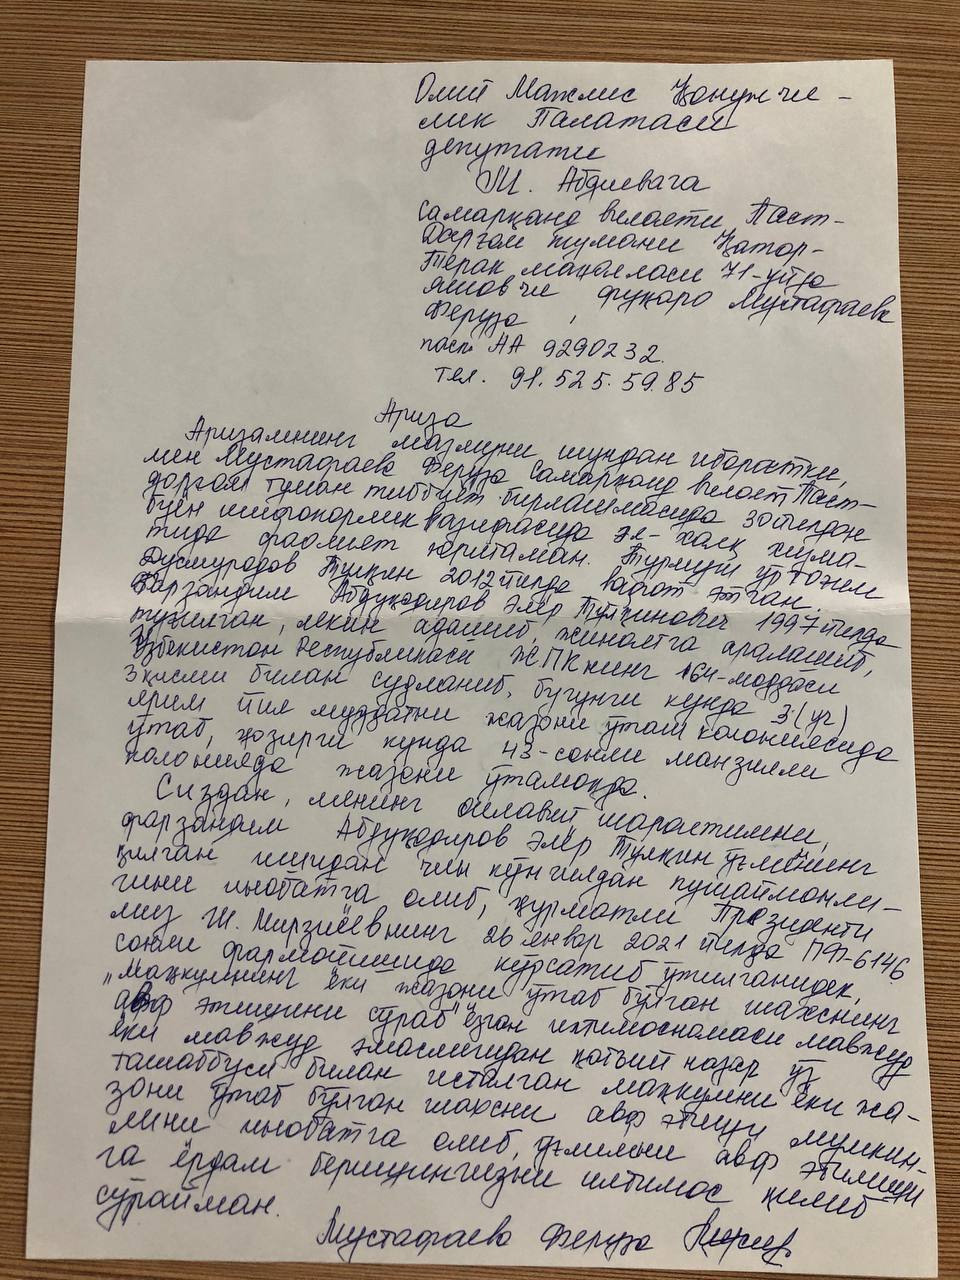 Олий Мажлис Қонунчи-
лик Палатаси
депутати
М. Абдиевага
Самарқанд вилояти Паст-
Дарғом тумани Қатор-
Терак махалласи 71-уйда
яшовчи фуқаро Мустафаева
Феруза,
пасп АА 9290232.
тел. 91.525.59.85
Ариза
Аризамнинг мазмуни шундан иборатки,
мен Мустафаева Феруза Самарқанд вилоят Паст-
дарғом туман тиббиёт бирлашмасида 30 йилдан
буён шифокорлик вазифасида эл-халқ хизма-
тида фаолият юритаман. Турмуш ўртоғим
Дусмуродов Тулқин 2012 йилда вафот этган.
Фарзандим Абдуқодиров Элёр Тулқинович 1997 йилда
туғилган, лекин адашиб, жиноятга аралашиб,
Узбекистон Республикаси ЖПКнинг 164-моддаси
3 қисми билан судланиб, бугунги кунда 3 (уч)
ярим йил муддатни жазони ўташ колониясида
ўтаб, ҳозирги кунда 43-сонли манзилли
колонияда жазони ўтамоқда.
Сиздан, менинг оилавий шароитимни,
фарзандим Абдуқодиров Элёр Тулқин ўғлининг
қилган ишидан чин кўнгилдан пушаймонли-
гини инобатга олиб, ҳурматли Президенти
миз Ш. Мирзиёевнинг 26 январ 2021 йилда ПФ-6146
сонли фармойишида кўрсатиб ўтилганидек,
"Маҳкумнинг ёки жазони ўтаб бўлган шахснинг
авф этишни сўраб" ёзган илтимосномаси мавжуд
ёки мавжуд эмаслигидан қатъий назар ўз
ташаббуси билан исталган маҳкумни ёки жа-
зони ўтаб бўлган шахсни авф этиш мумкин-
лини инобатга олиб, ўғлимни авф этилиши
га ёрдам беришингизни илтимос қилиб
сўрайман.
Мустафаева Феруза